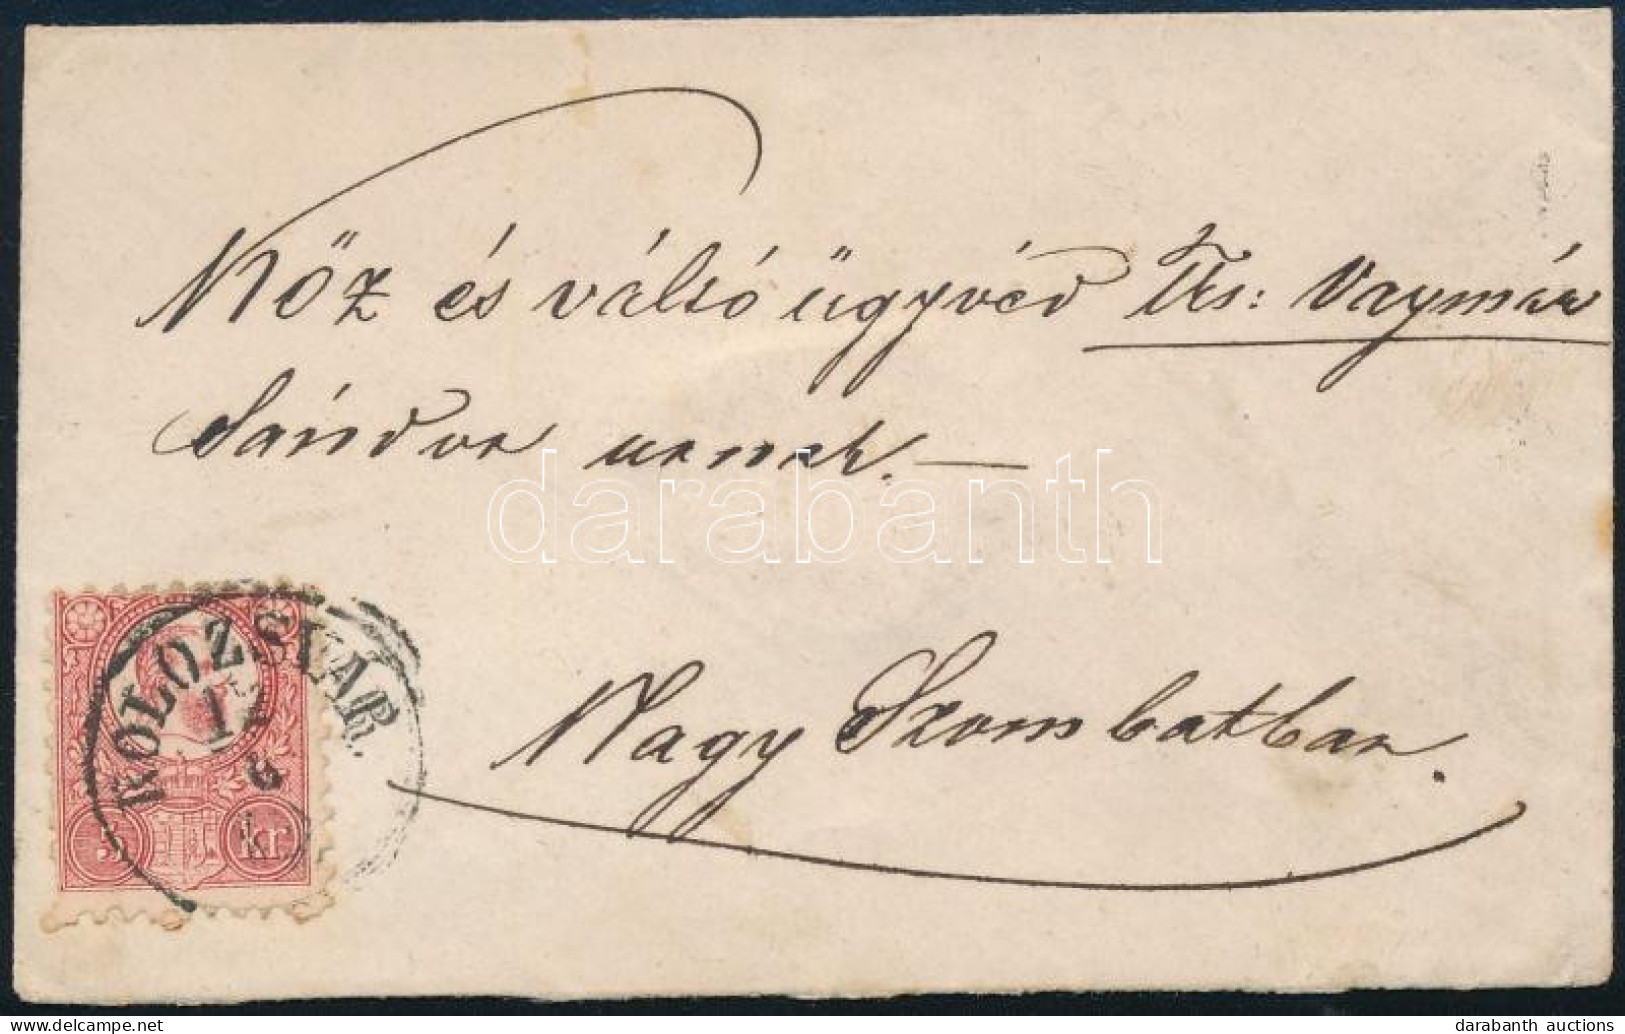 Köz és váltó ügyvéd Ts: Vaymár
Sándor urnak. —
darabanth
KOLOZSVÁR
5 kr
Nagy Szombatban.
darabanth auctions